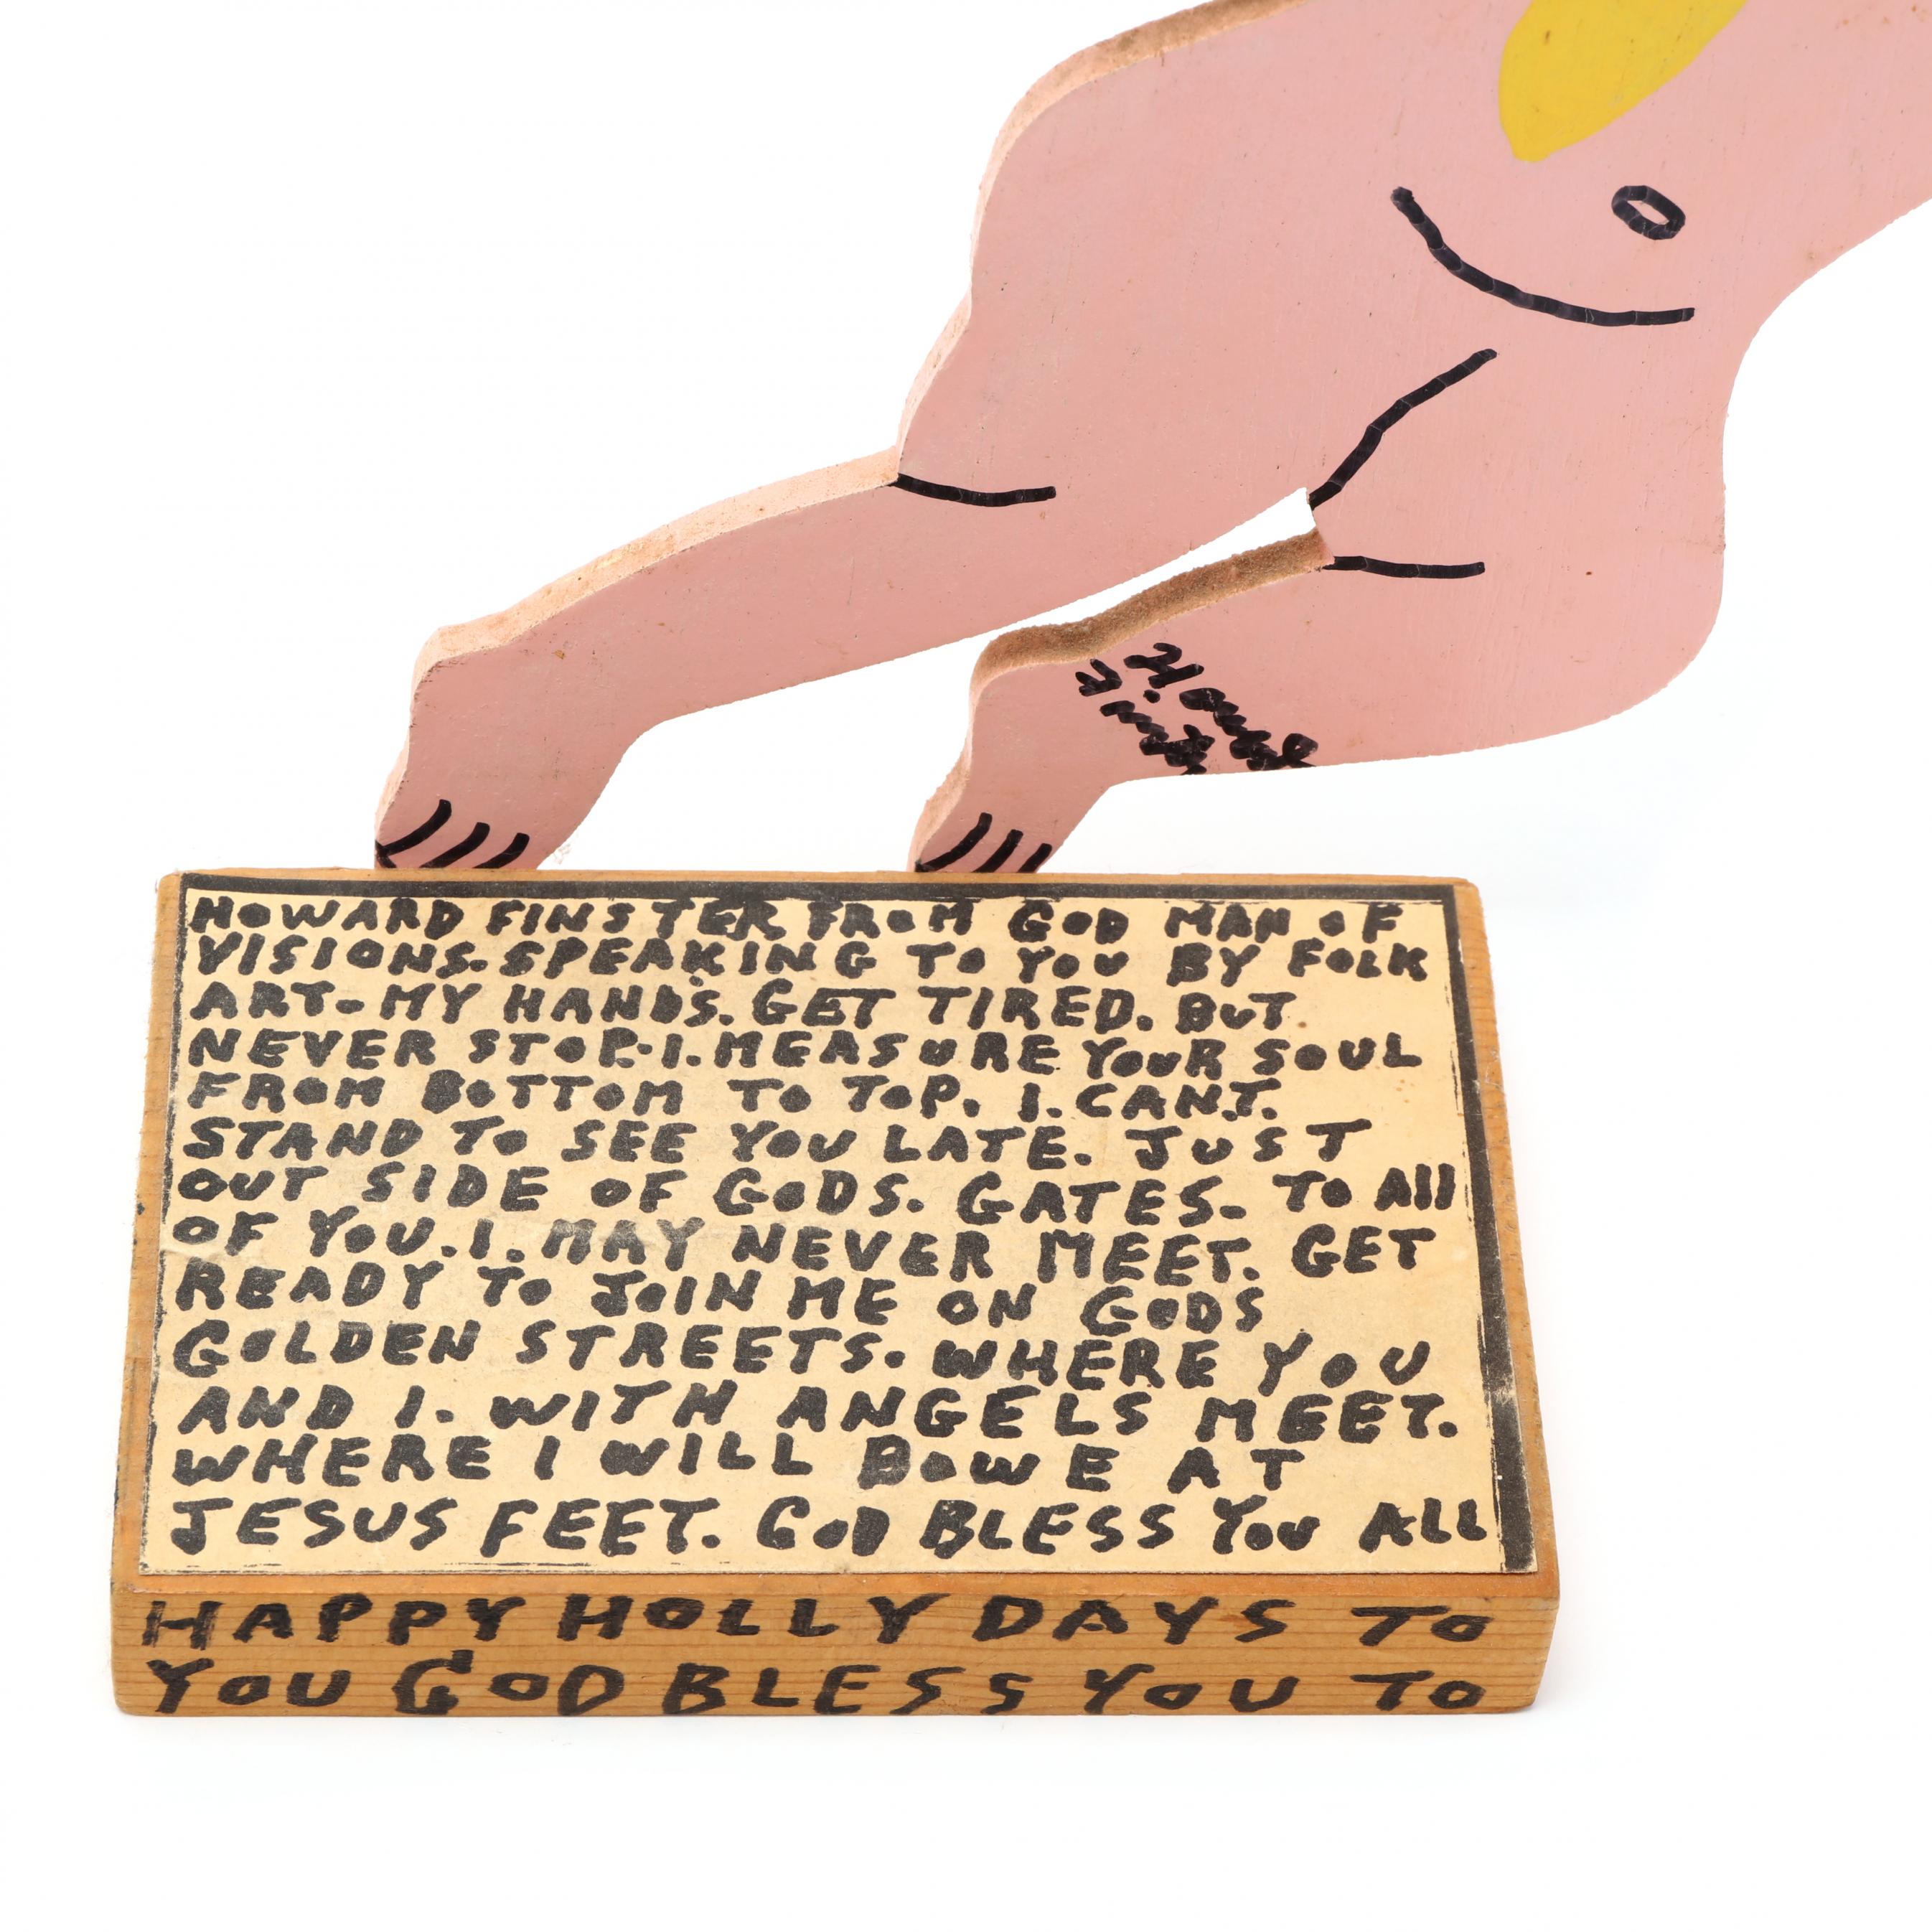 HOWARD FINSTER FROM GOD MAN OF
VISIONS. SPEAKING TO YOU BY FOLK
ART- MY HANDS. GET TIRED. BUT
NEVER STOP.I. MEASURE YOUR SOUL
FROM BOTTOM TO TOP. I. CANT.
STAND TO SEE YOU LATE. JUST
OUT SIDE OF GODS. GATES. TO All
OF YOU. I. MAY NEVER MEET. GET
READY TO JOIN ME ON GODS
GOLDEN STREETS. WHERE YOU
AND I. WITH ANGELS MEET.
WHERE I WILL BOWE AT
JESUS FEET. GOD BLESS YOU ALL
HAPPY HOLLY DAYS TO
YOU GOD BLESS YOU TO